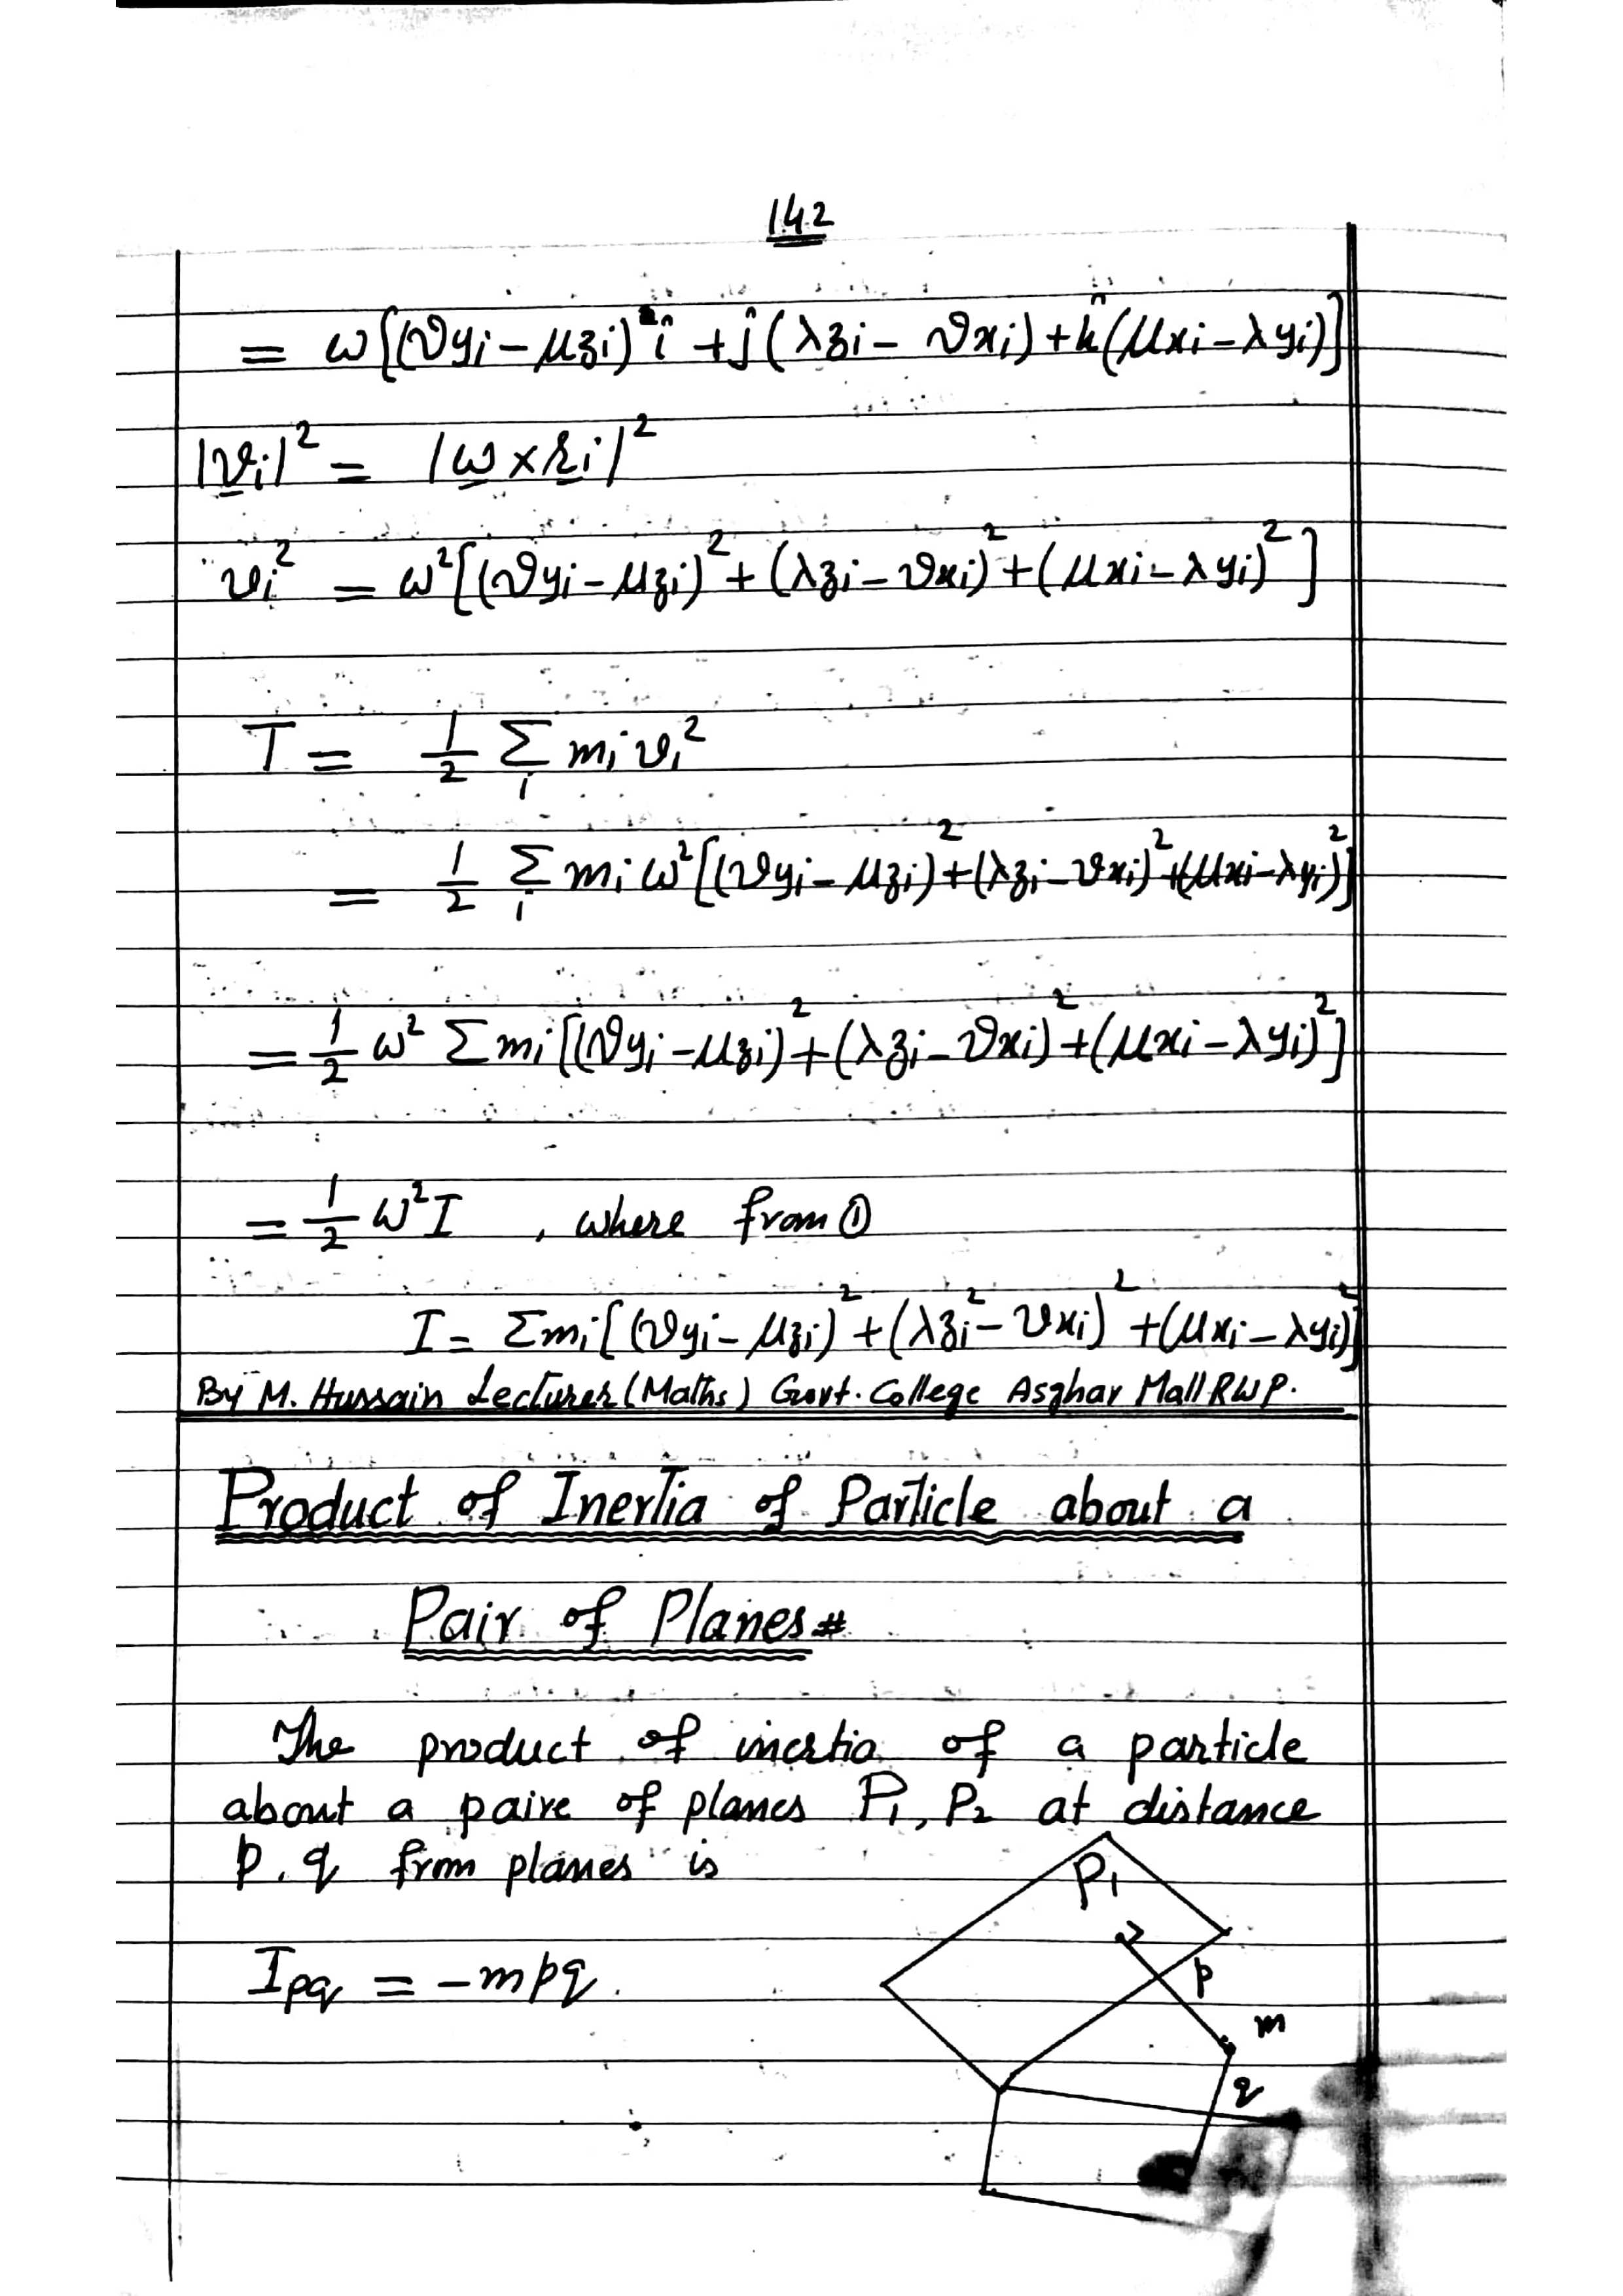 142
= ω[(ϑyi − μzi) î + ĵ(λzi − ϑxi) + k̂(μxi − λyi)]
|vi|² = |ω × ri|²
vi² = ω²[(ϑyi − μzi)² + (λzi − ϑxi)² + (μxi − λyi)²]
T = 1/2 Σi mi vi²
= 1/2 Σi mi ω²[(ϑyi − μzi)² + (λzi − ϑxi)² + (μxi − λyi)²]
= 1/2 ω² Σ mi [(ϑyi − μzi)² + (λzi − ϑxi)² + (μxi − λyi)²]
= 1/2 ω² I , where from ①
I = Σmi[(ϑyi − μzi)² + (λzi² − ϑxi)² + (μxi − λyi)²]
By M. Hussain Lecturer (Maths) Govt. College Asghar Mall RWP.
Product of Inertia of Particle about a
Pair of Planes #
The product of inertia of a particle
about a paire of planes P1, P2 at distance
p, q from planes is
P1
Ipq = −mpq.
p
m
q